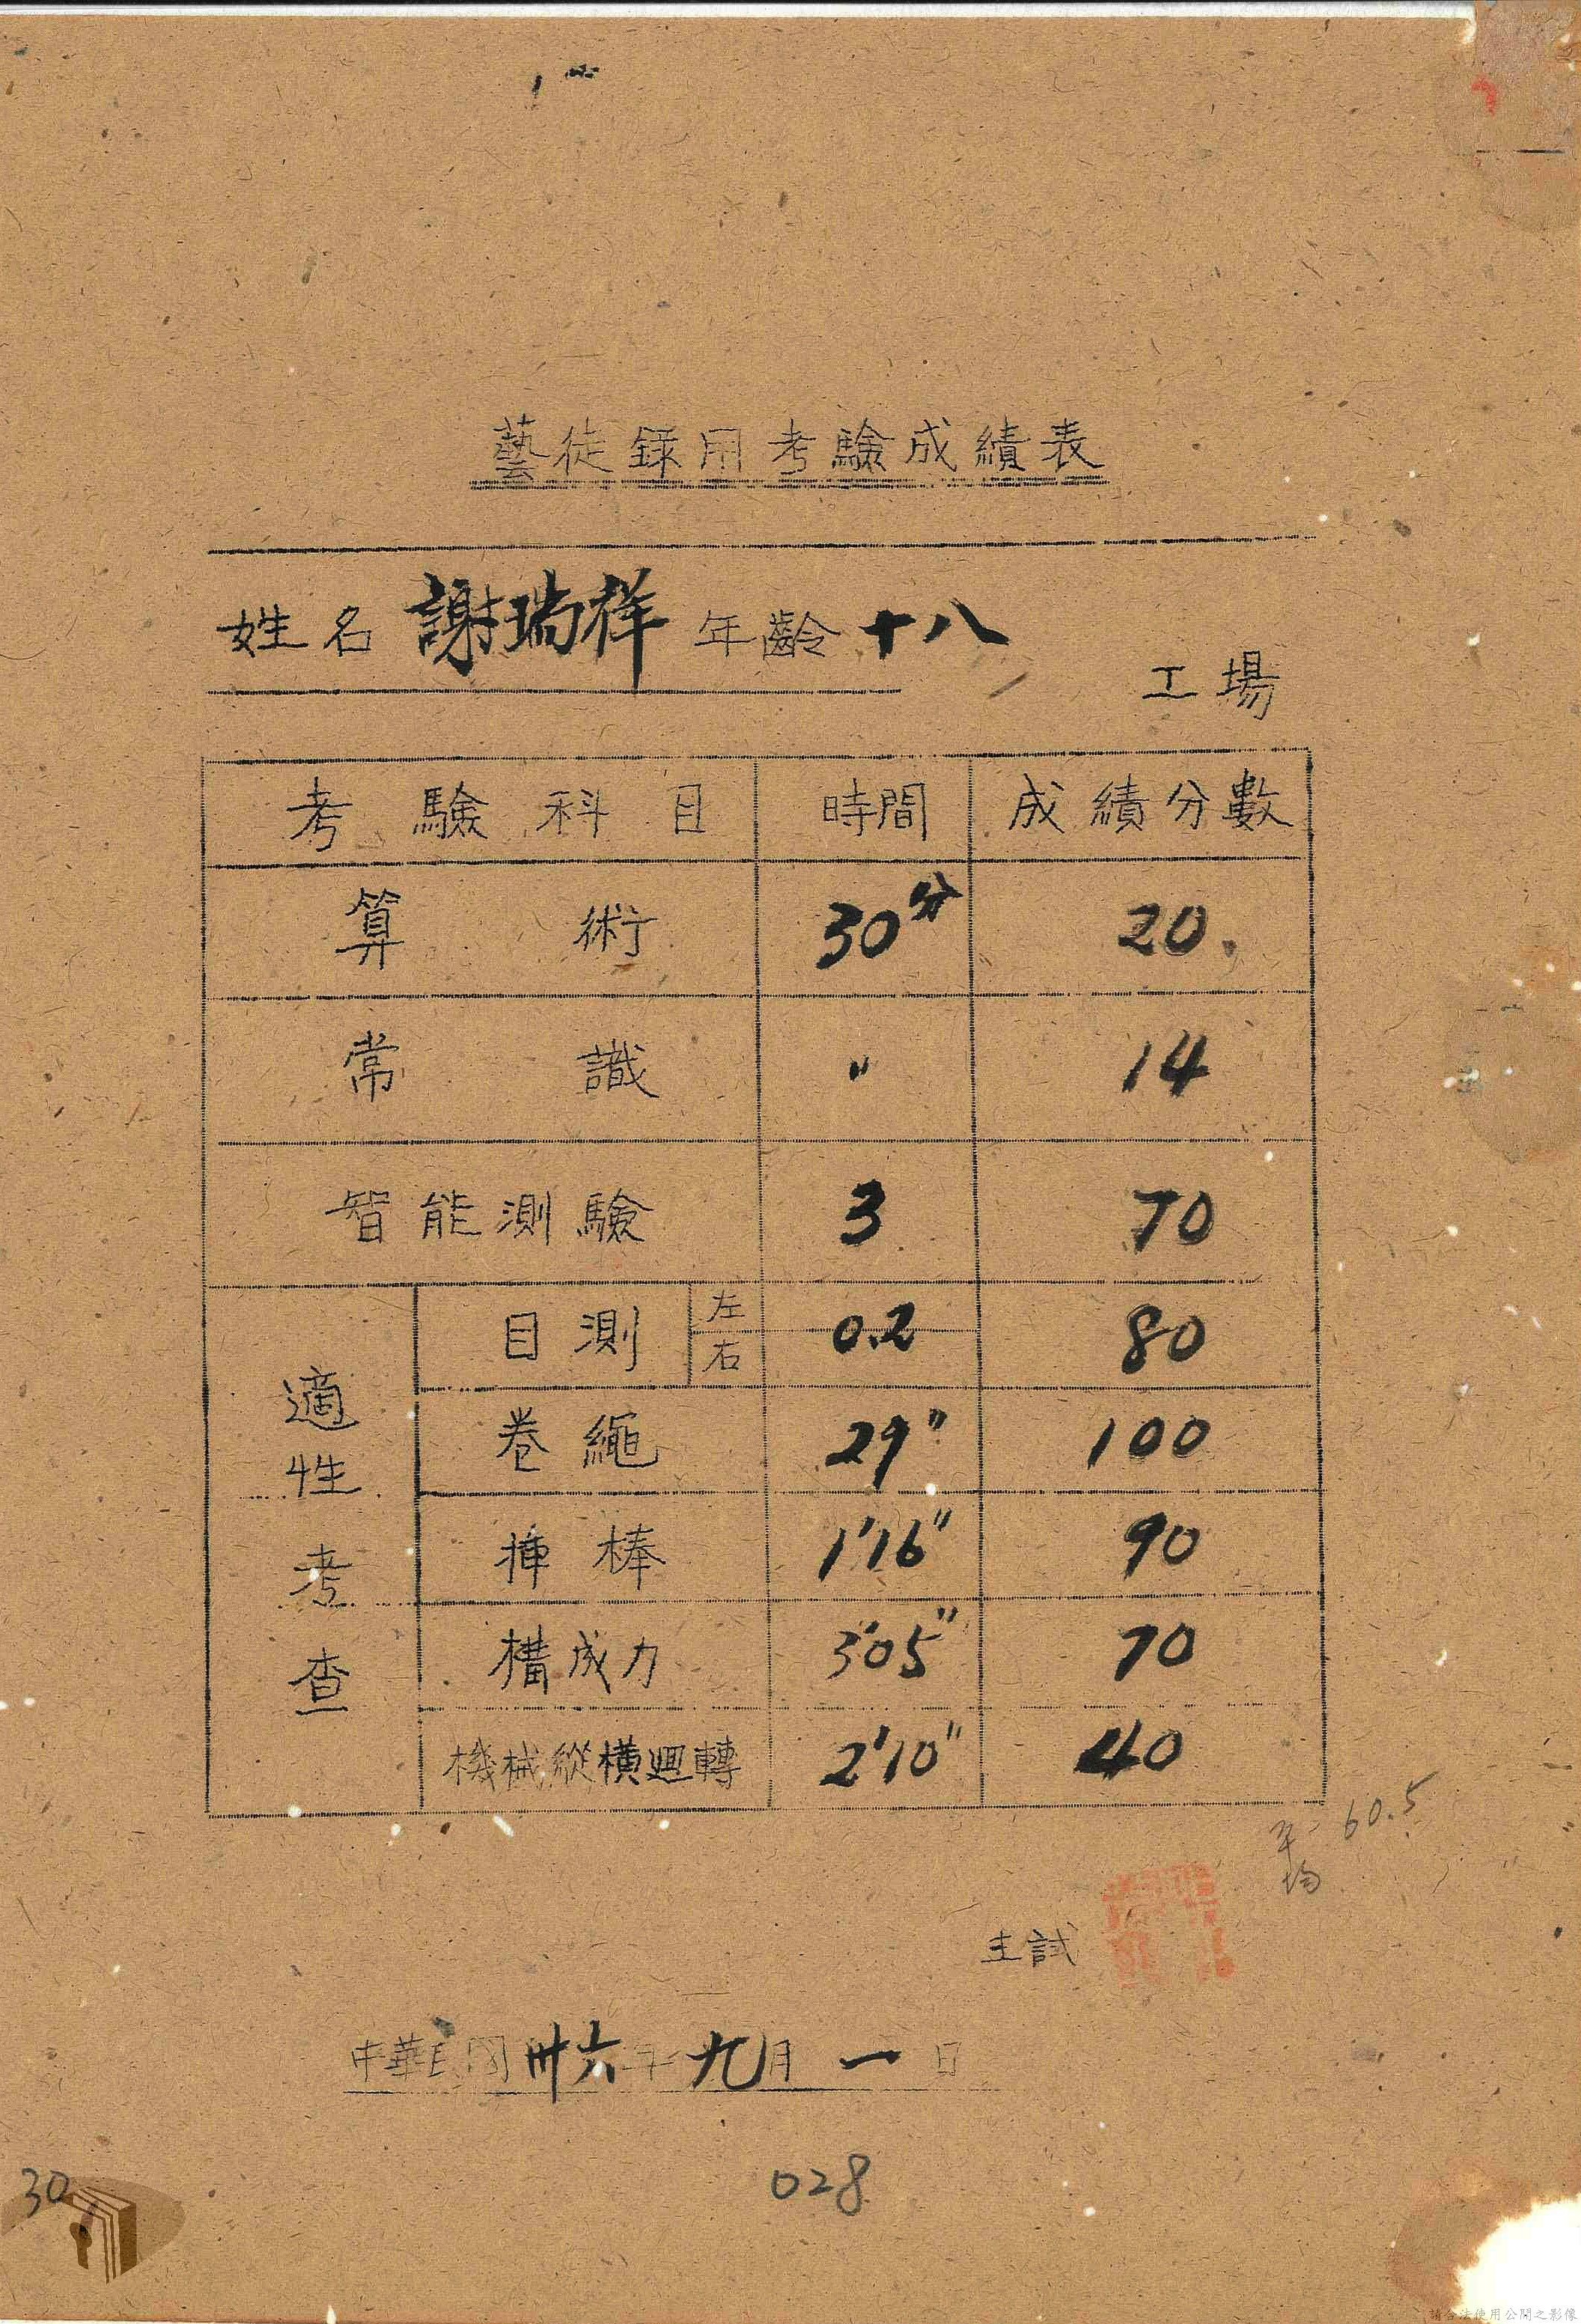 藝徒錄用考驗成績表
姓名 謝瑞祥 年齡 十八
工場
考驗科目 時間 成績分數
算術 30分 20
常識 〃 14
智能測驗 3 70
適性考查
目測 左 右 0.2 80
卷繩 29" 100
揷棒 1'16" 90
構成力 3'05" 70
機械縱橫廻轉 2'10" 40
平均 60.5
主試
中華民國卅六年九月一日
028
30
請合法使用公開之影像